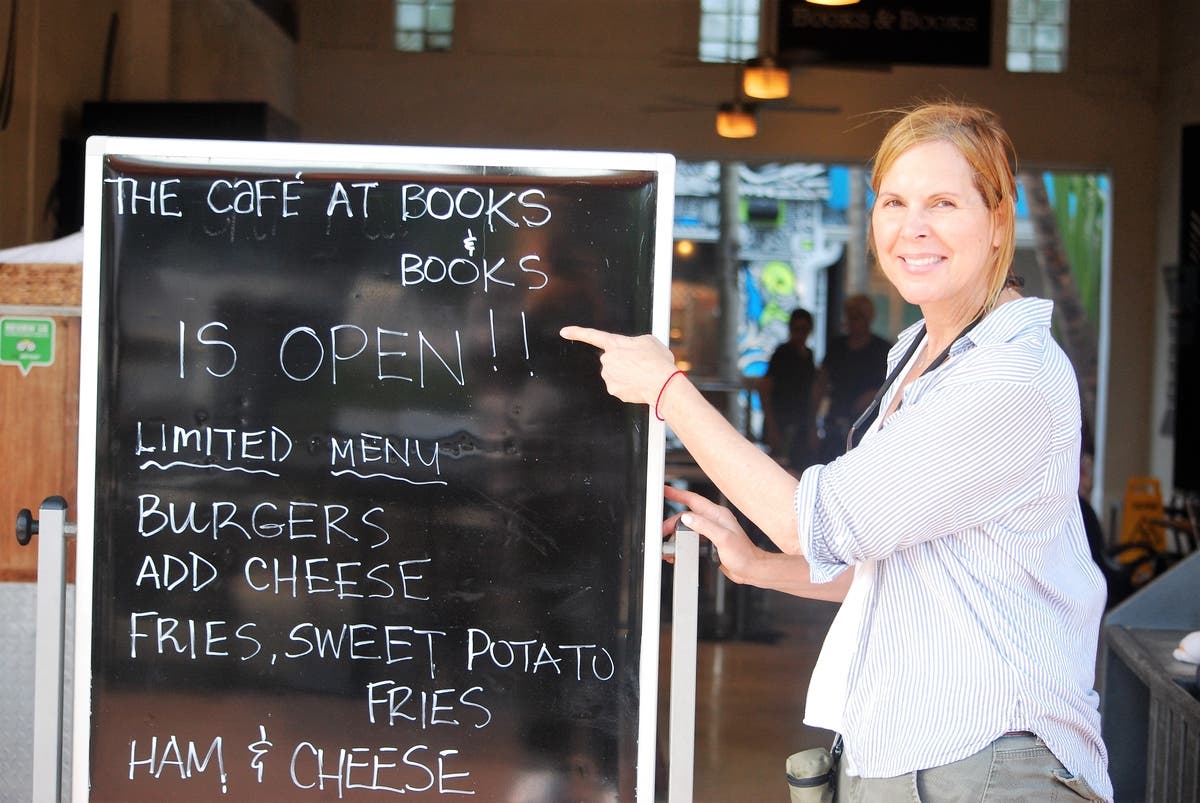 BOOKS & BOOKS
THE CAFÉ AT BOOKS
&
BOOKS
IS OPEN!!
LIMITED MENU
BURGERS
ADD CHEESE
FRIES, SWEET POTATO
FRIES
HAM & CHEESE